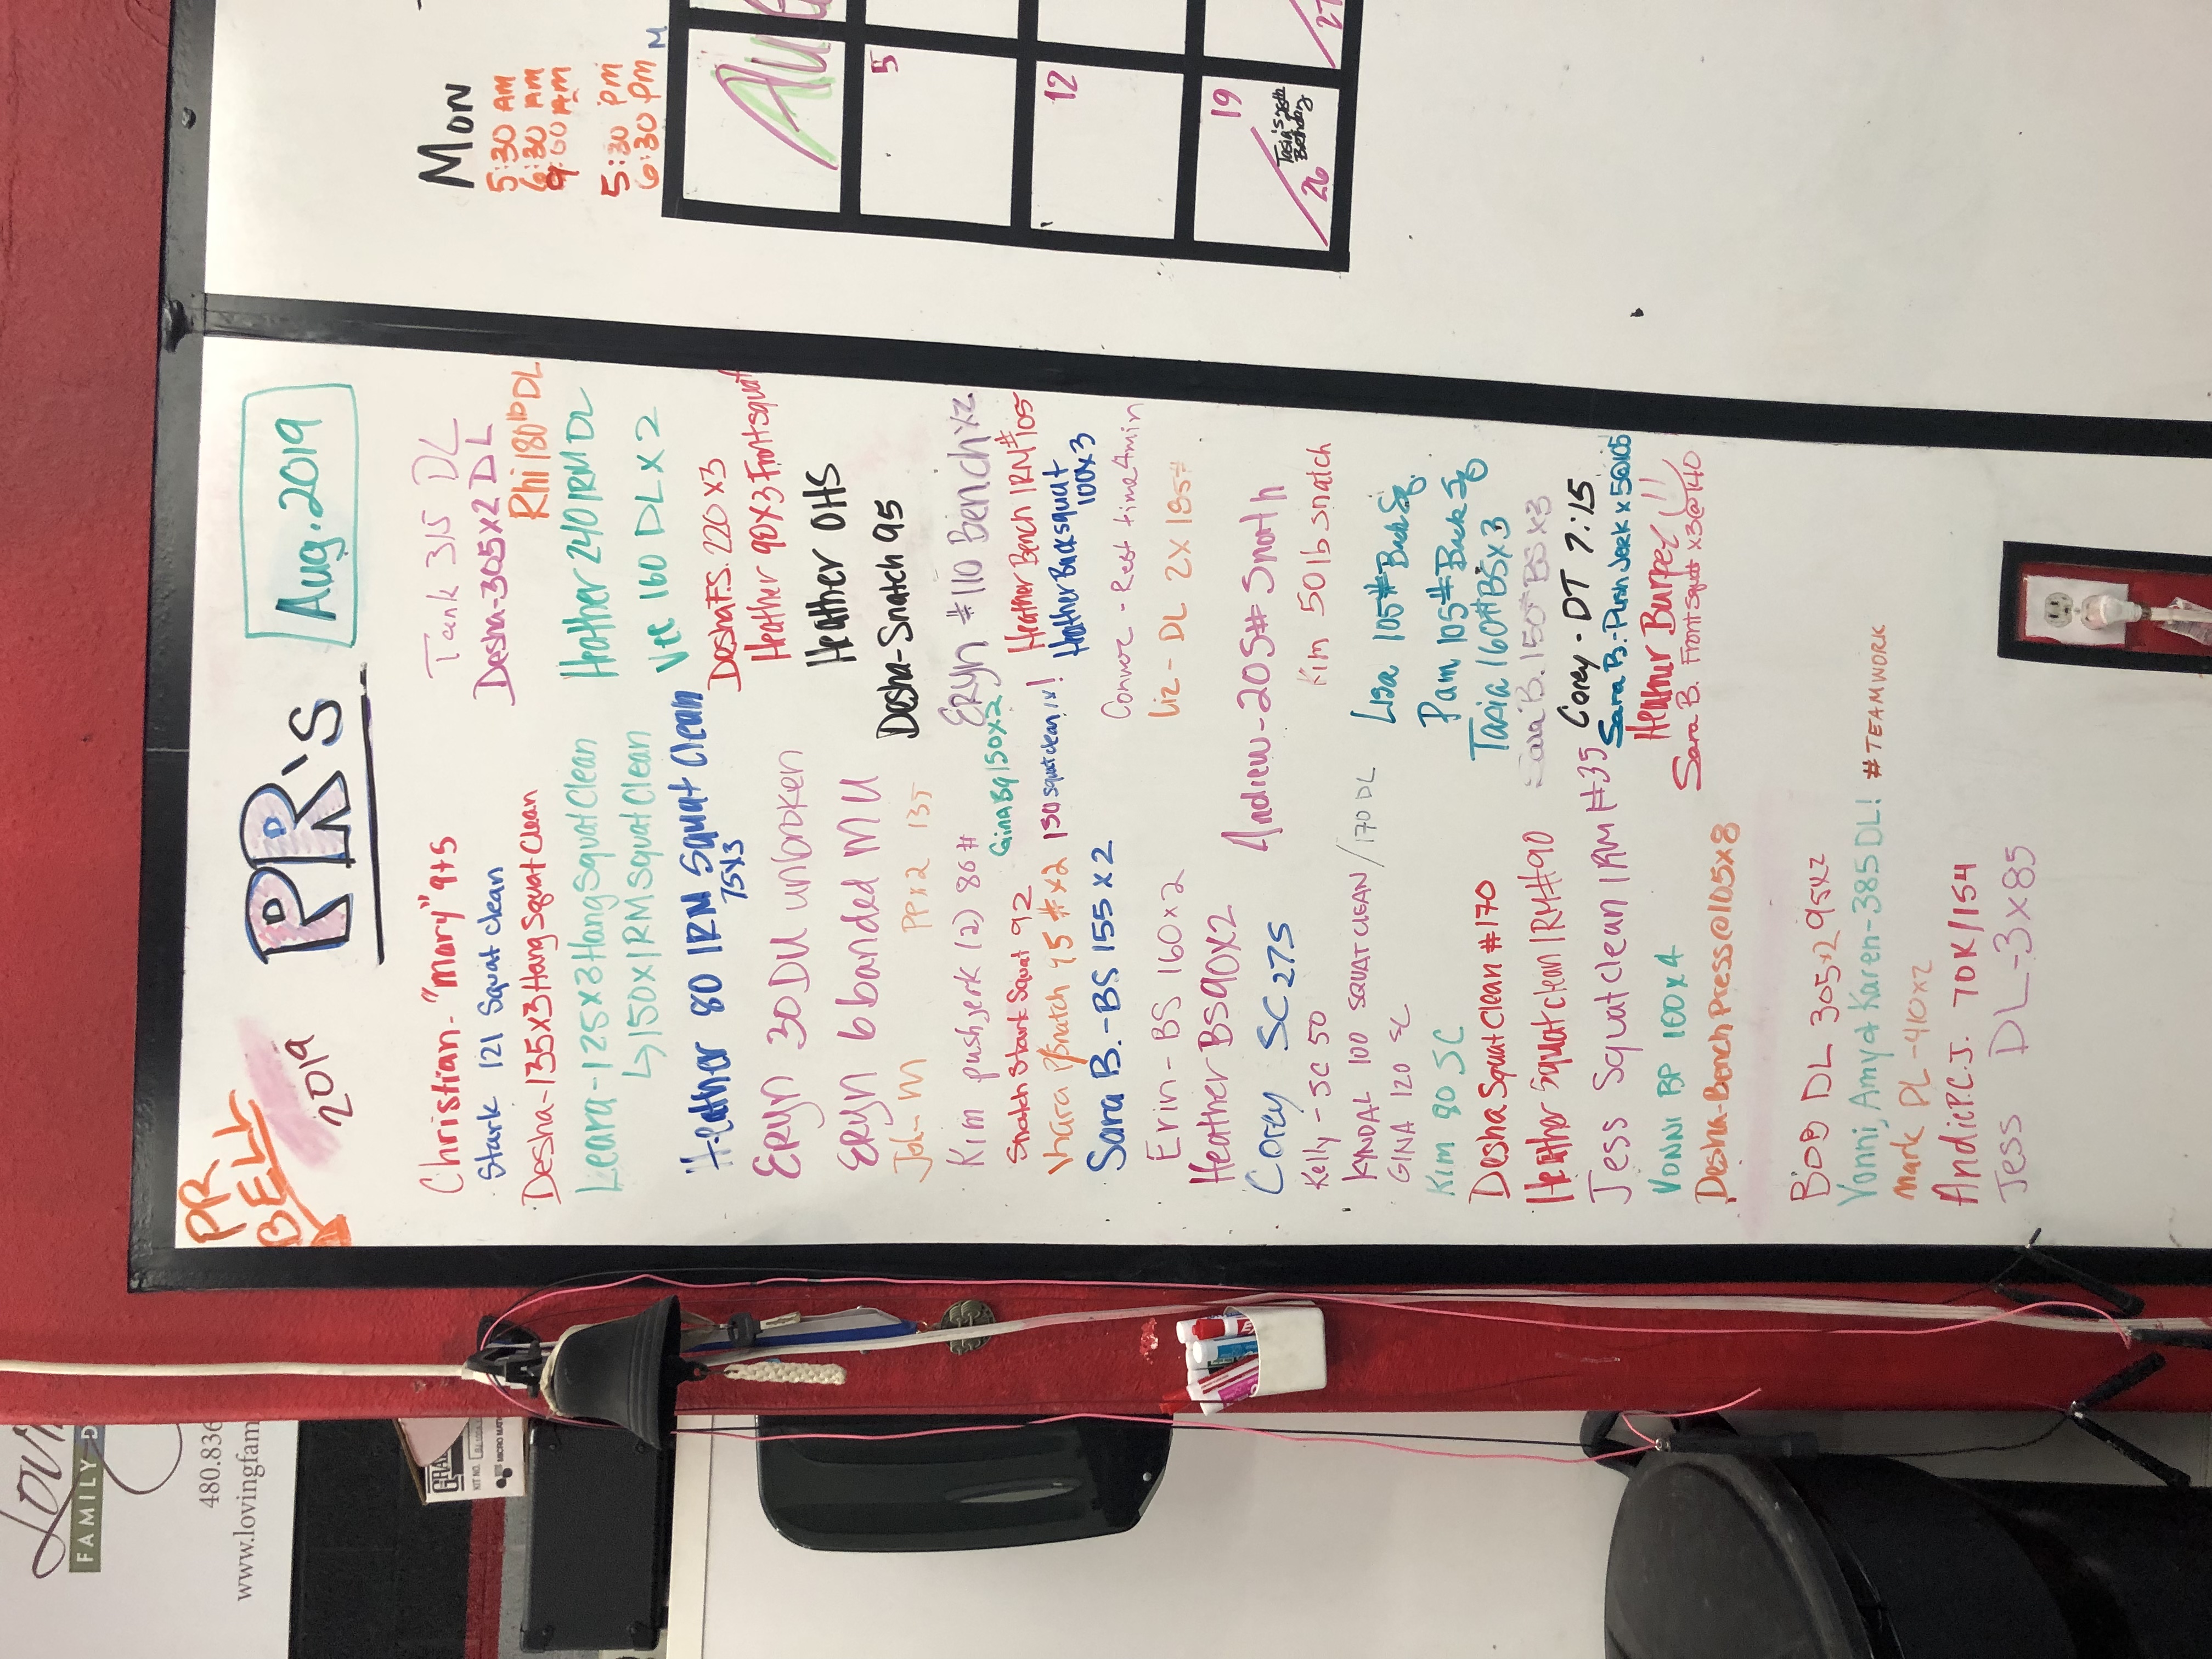 PR
BELL
2019
PR's
Aug. 2019
Christian - "Mary" 9+5
Stark 121 Squat clean
Desha - 135x3 Hang Squat Clean
Leara - 125x3 Hang Squat Clean
↳ 150x1RM Squat Clean
Heather 80 1RM Squat Clean
75x3
Eryn 30 DU unbroken
Eryn 6 banded MU
John M PPx2 135
Kim push jerk (2) 86#
Gina BSq 150x2
Snatch Stark Squat 92
95#x2
130 squat clean!!!
Sara B. - BS 155x2
Erin - BS 160x2
Heather BS 90x2
Corey SC 275
Kelly - SC 50
KYNDAL 100 SQUAT CLEAN / 170 DL
GINA 120 SC
Kim 90 SC
Desha Squat Clean #170
Heather Squat clean 1RM #90
Jess Squat clean 1RM #35
VONNI BP 100x4
Desha - Bench Press @ 105x8
BOB DL 305x2 95x2
Vonni, Amy & Karen - 385 DL! #TEAMWORK
Mark DL - 410x2
Andie P. C.J. 70K/154
Jess DL - 3x85
Tank 315 DL
Desha - 305x2 DL
Rhi 180lb DL
Heather 240 1RM DL
Vee 160 DL x 2
Desha F.S. 220x3
Heather 90x3 Front squat
Heather OHS
Desha - Snatch 95
Eryn #110 Bench x2
Heather Bench 1RM #105
Heather Back squat
100x3
Connor - Rest time 4min
Liz - DL 2x185#
Andrew - 205# Snatch
Kim 50lb Snatch
Lisa 105# Back Sq
Pam 105# Back Sq
Tasia 160# BS x3
Sara B. 150# BS x3
Corey - DT 7:15
Sara B. - Push Jerk x5@105
Heather Burpee!!
Sara B. Front Squat x3@140
Mon
5:30 AM
6:30 AM
9:00 AM
5:30 PM
6:30 PM
M
Au
5
12
19
26
Tasia's
Birthday
27
Lovin
FAMILY D
480.836
www.lovingfam
GRA
KIT NO.
MICRO MAT